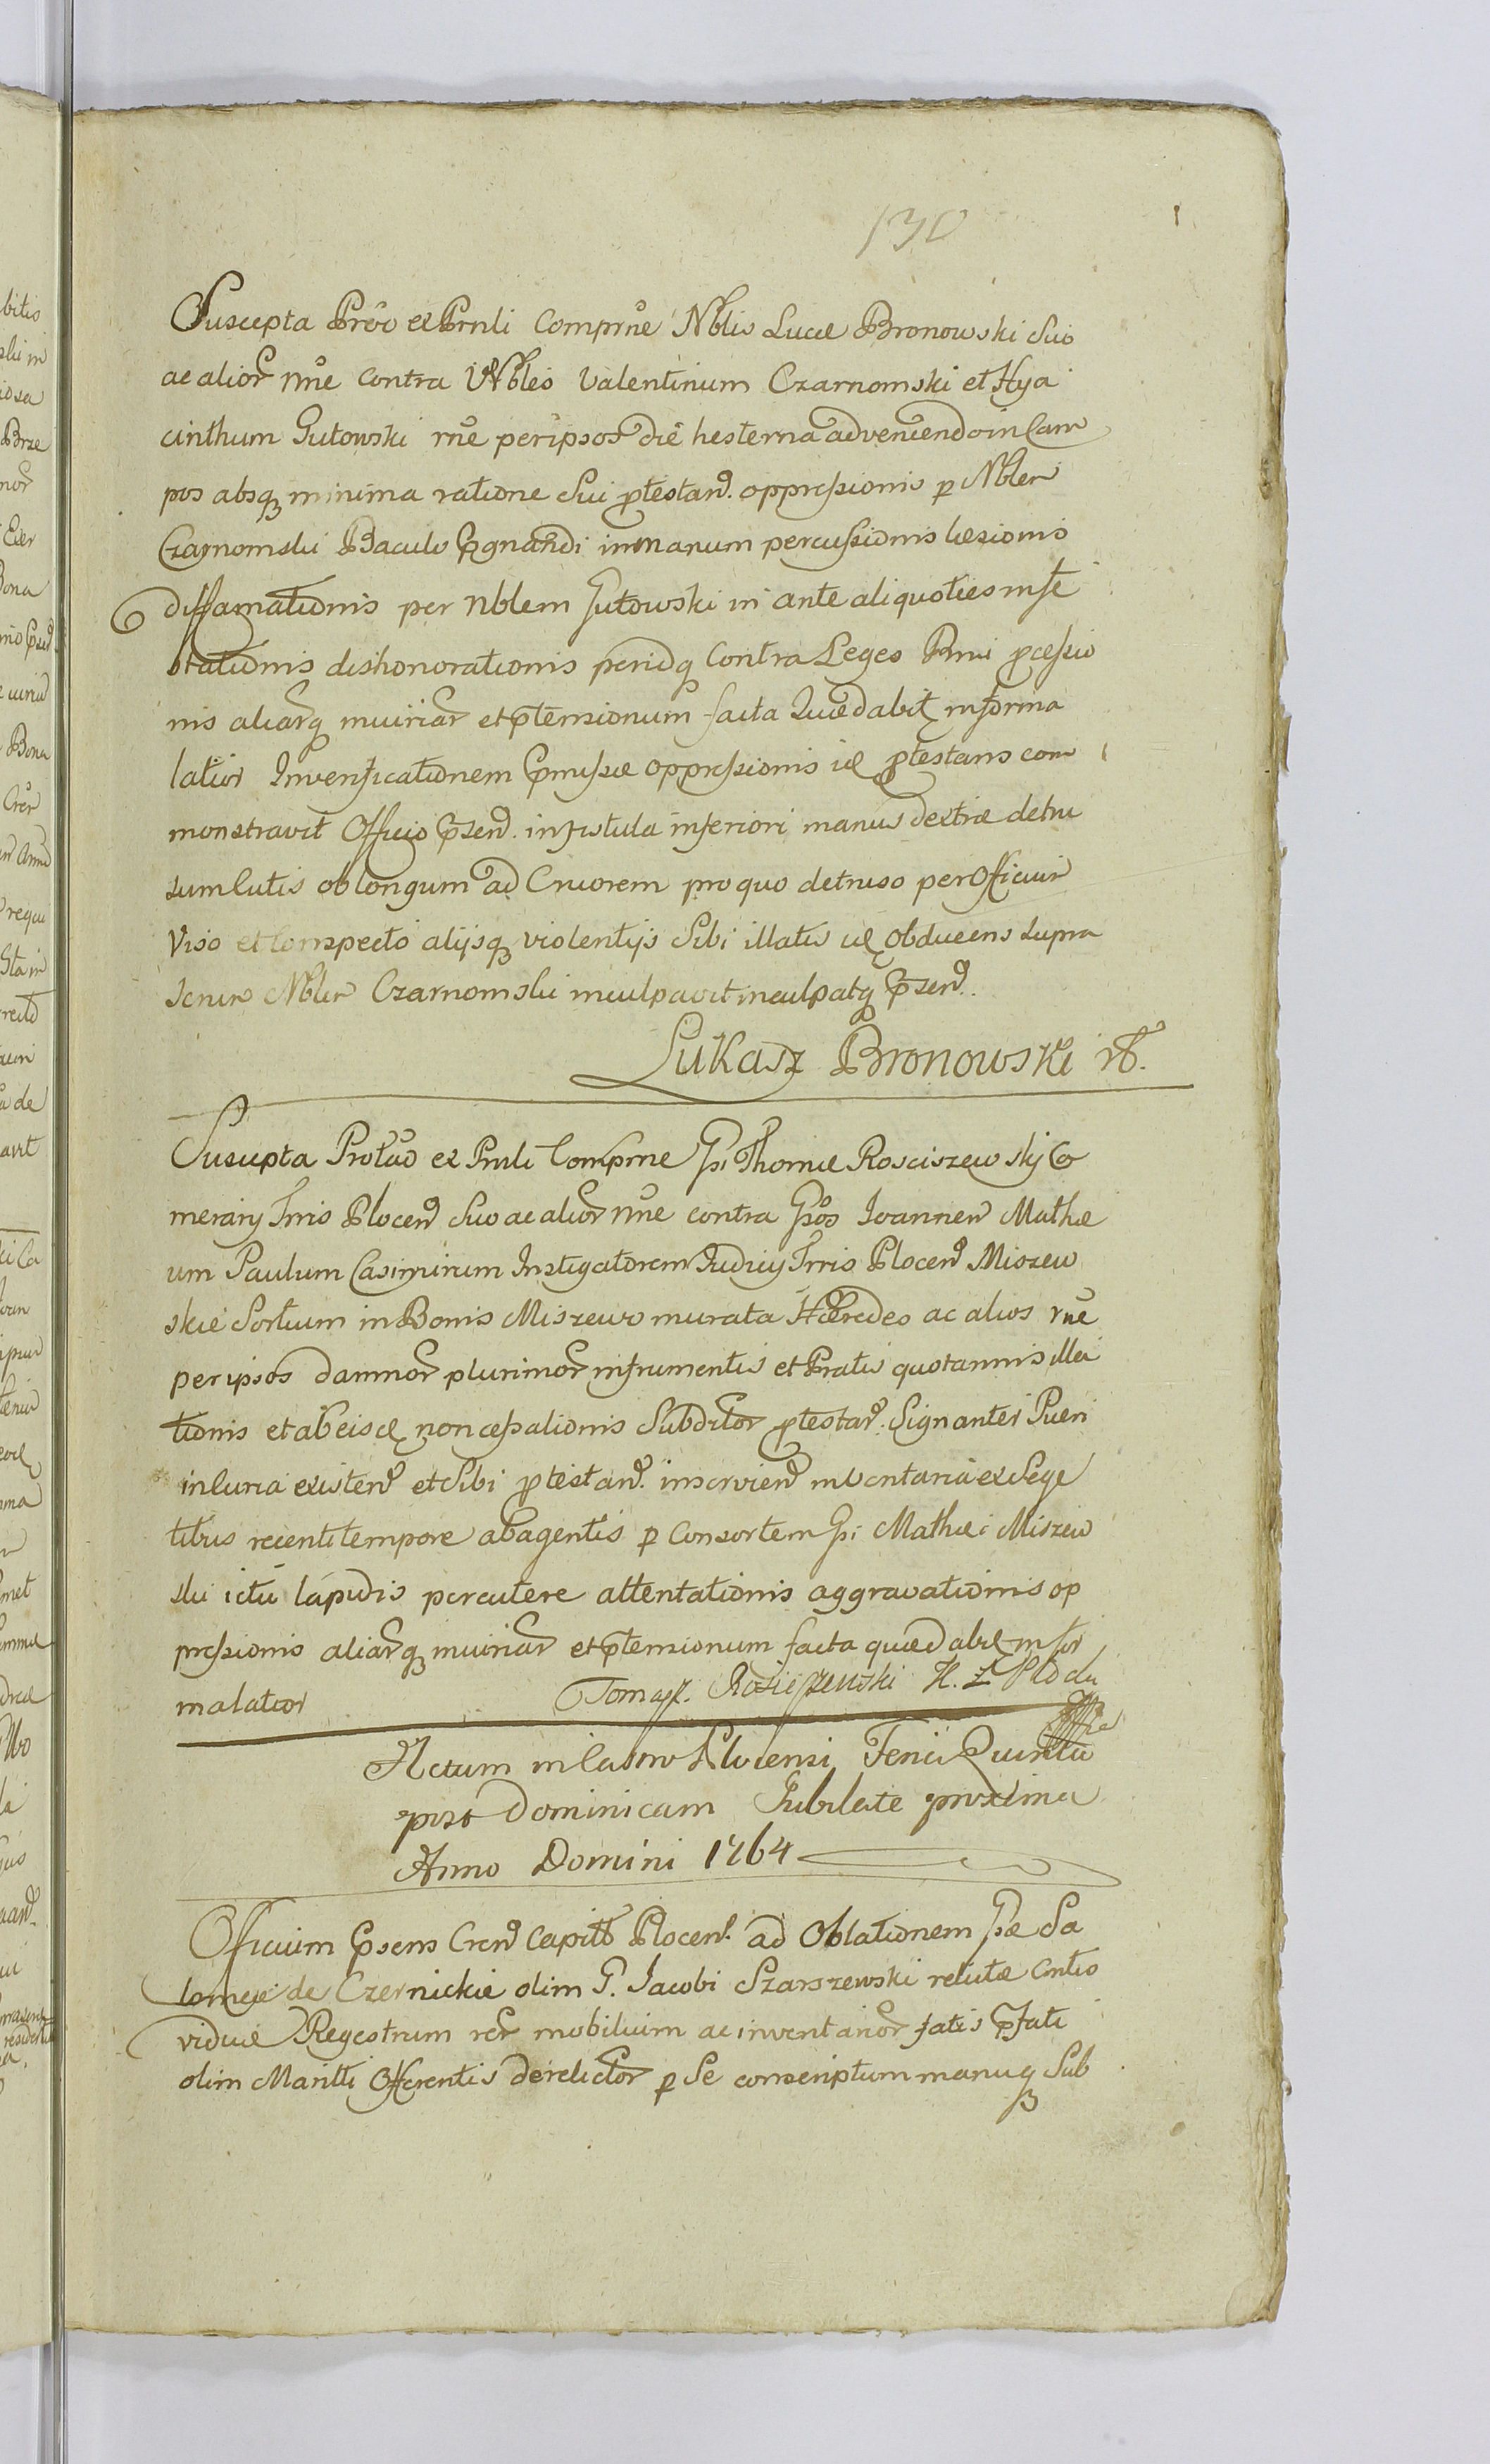 130
Suscepta Prôo ex Prnli Comprne Nblis Lucæ Bronowski Suo
ac alior nne contra Nbles Valentinum Czarnomski et Hya
cinthum Gutowski rne per ipsos die hesterna adveniendo in Cam
pos absq minima ratione Sui ptestan. oppressionis p Nblem
Czarnomski Baculo pgnandi in manum percussionis læsionis
diffamationis per Nblem Gutowski in ante aliquoties infe
stationis dishonorationis peridq Contra Leges Rni pcessio
nis aliarq iniuriar et ptensionum facta Quæ dabit informa
latior Inverificationem pmissæ oppressionis id ptestans com
monstravit Officio psen. in fistula inferiori manus dextræ detru
sum Cutis oblongum ad Cruorem pro quo detruso per Officium
Viso et Conspecto alijsq violentijs Sibi illatis obducens supra
Nblem Czarnomski inculpavit inculpatq psen.
Łukasz Bronowski
Suscepta Protao ex Prnli Comprne Gsi Thomæ Rosciszewskij Co
merarij Trris Plocen Suo ac alior nne contra Gsos Ioannem Mathæ
um Paulum Casimirum Instigatorem Iudicij Trris Plocen Miszew
skie Sortium in Bonis Miszewo murata Hæredes ac alios rne
per ipsos damnor plurimor in frumentis et Pratis quotannis illa
tionis et ab eisd non cessationis Subditor ptestan. Signanter Pueri
in Curia existen et Sibi ptestan. inservien inventaria ex Sege
tibus recenti tempore abagentis p Consortem Gsi Mathæi Miszew
ski ictu lapidis percutere attentationis aggravationis op
pressionis aliarq iniuriar et ptensionum facta quæ dabit infor
ma latior Tomasz Rosciszewski K. Z. Płocki
Actum in Castro Plocensi Feria Quinta
post Dominicam Jubilate proxima
Anno Domini 1764
Officium psens Cren Capitle Plocen. ad Oblationem Gsæ Sa
lomeæ de Czernickie olim G. Iacobi Szarszewski relictæ Cntis
viduæ Regestrum rer mobilium ac inventarior fatis pfati
olim Mariti Offerentis derelictor p Se conscriptum manuq Sub